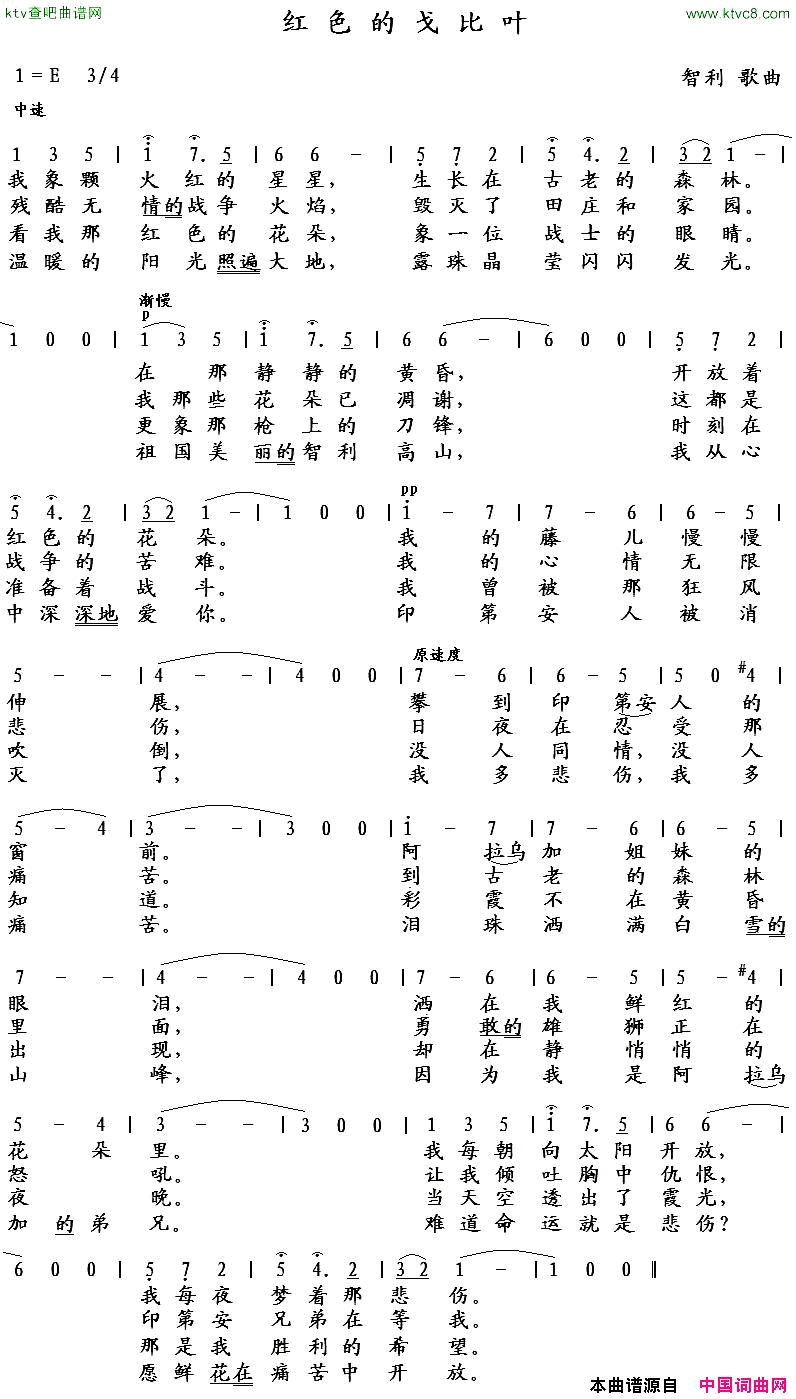 ktv查吧曲谱网
红色的戈比叶
www.ktvc8.com
1=E 3/4
智利 歌曲
中速
1 3 5 | i 7. 5 | 6 6 - | 5 7 2 | 5 4. 2 | 3 2 1 - |
我象颗 火红的 星星， 生长在 古老的 森林。
残酷无 情的战争 火焰， 毁灭了 田庄和 家园。
看我那 红色的 花朵， 象一位 战士的 眼睛。
温暖的 阳光照遍大地， 露珠晶 莹闪闪 发光。
渐慢
p
1 0 0 | 1 3 5 | i 7. 5 | 6 6 - | 6 0 0 | 5 7 2 |
在 那 静静的 黄昏， 开放着
我那些 花朵已 凋谢， 这都是
更象那 枪上的 刀锋， 时刻在
祖国美 丽的智利 高山， 我从心
pp
5 4. 2 | 3 2 1 - | 1 0 0 | i - 7 | 7 - 6 | 6 - 5 |
红色的 花 朵。 我 的 藤 儿 慢 慢
战争的 苦 难。 我 的 心 情 无 限
准备着 战 斗。 我 曾 被 那 狂 风
中深深地 爱 你。 印 第 安 人 被 消
原速度
5 - - | 4 - - | 4 0 0 | 7 - 6 | 6 - 5 | 5 0 #4 |
伸 展， 攀 到 印 第安 人 的
悲 伤， 日 夜 在 忍 受 那
吹 倒， 没 人 同 情，没 人
灭 了， 我 多 悲 伤，我 多
5 - 4 | 3 - - | 3 0 0 | i - 7 | 7 - 6 | 6 - 5 |
窗 前。 阿 拉乌 加 姐 妹 的
痛 苦。 到 古 老 的 森 林
知 道。 彩 霞 不 在 黄 昏
痛 苦。 泪 珠 洒 满 白 雪的
7 - - | 4 - - | 4 0 0 | 7 - 6 | 6 - 5 | 5 - #4 |
眼 泪， 洒 在 我 鲜 红 的
里 面， 勇 敢的 雄 狮 正 在
出 现， 却 在 静 悄 悄 的
山 峰， 因 为 我 是 阿 拉乌
5 - 4 | 3 - - | 3 0 0 | 1 3 5 | i 7. 5 | 6 6 - |
花 朵 里。 我每朝 向太阳 开放，
怒 吼。 让我倾 吐胸中 仇恨，
夜 晚。 当天空 透出了 霞光，
加 的弟 兄。 难道命 运就是 悲伤？
6 0 0 | 5 7 2 | 5 4. 2 | 3 2 1 - | 1 0 0 ‖
我每夜 梦着那 悲 伤。
印第安 兄弟在 等 我。
那是我 胜利的 希 望。
愿鲜花在 痛苦中 开 放。
本曲谱源自 中国词曲网